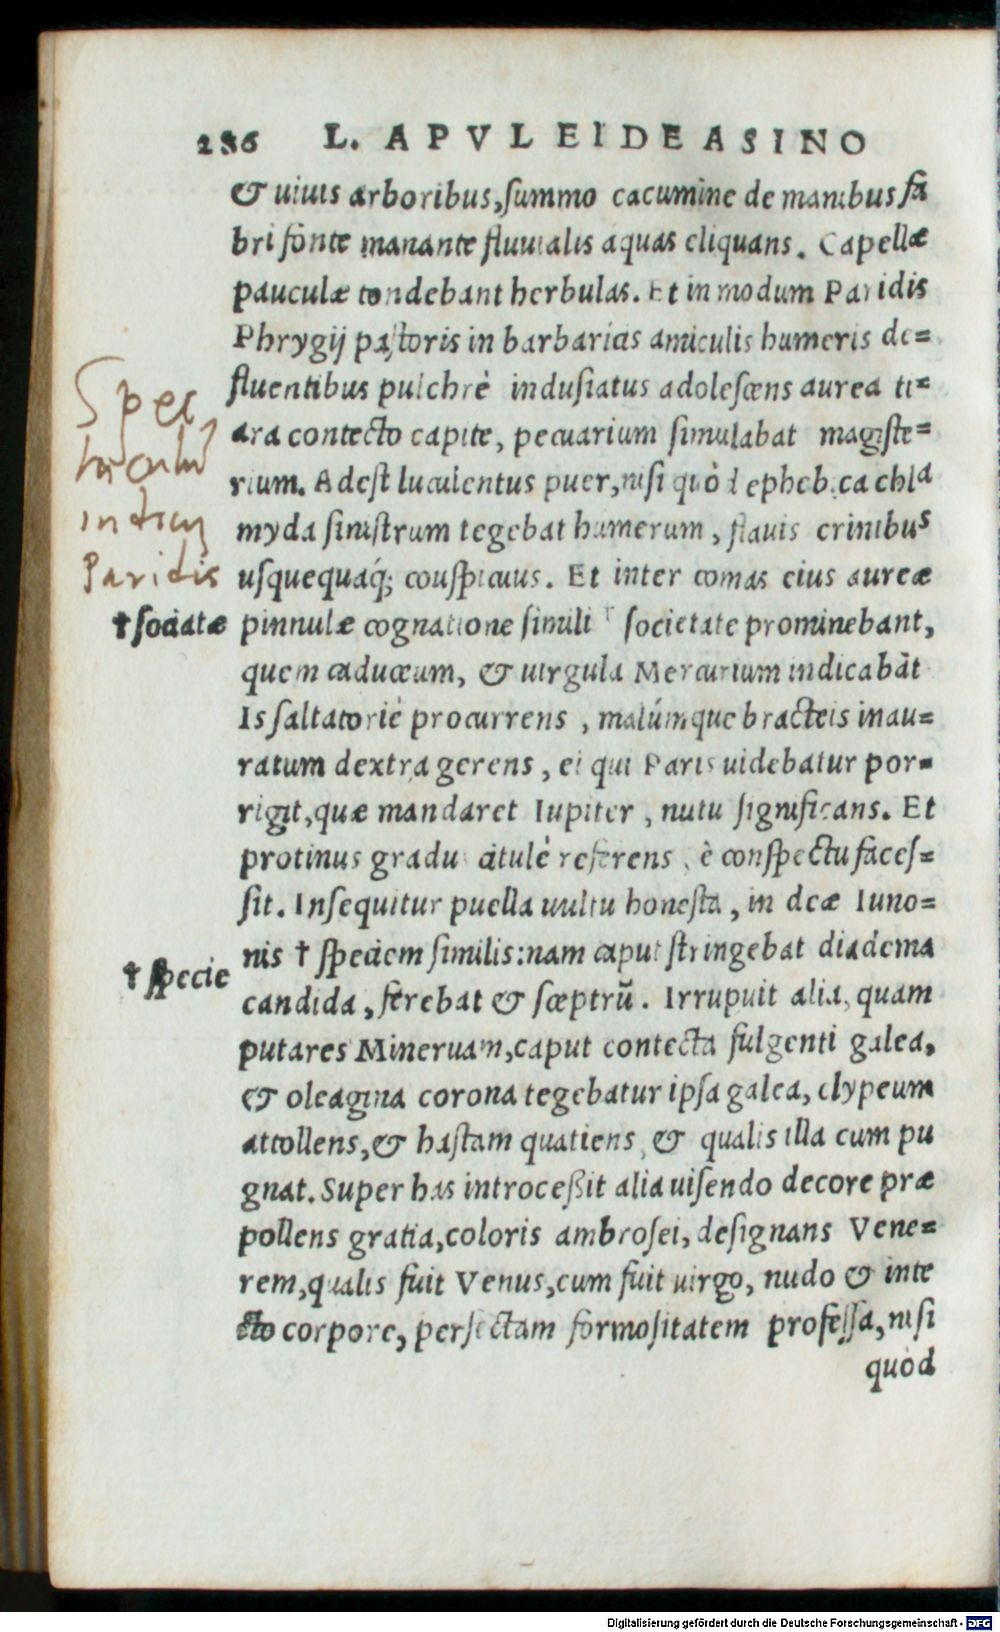 286 L. APVLEI DE ASINO
& uiuis arboribus, summo cacumine de manibus fa
bri fonte manante fluuialis aquas eliquans. Capellæ
pauculæ tondebant herbulas. Et in modum Paridis
Phrygij pastoris in barbaricis amiculis humeris de=
fluentibus pulchrè indusiatus adolescens aurea ti=
ara contecto capite, pecuarium simulabat magiste=
rium. Adest luculentus puer, nisi quòd ephebica chla
myda sinistrum tegebat humerum, flauis crinibus
usquequaq́; conspicuus. Et inter comas eius aureæ
pinnulæ cognatione simili † societate prominebant,
quem caduceum, & uirgula Mercurium indicabãt
Is saltatoriè procurrens, malúmque bracteis inau=
ratum dextra gerens, ei qui Paris uidebatur por=
rigit, quæ mandaret Iupiter, nutu significans. Et
protinus gradu citulè referens, è conspectu faces=
sit. Insequitur puella uultu honesta, in deæ Iuno=
nis † speciem similis: nam caput stringebat diadema
candida, ferebat & sceptrũ. Irrupuit alia, quam
putares Mineruam, caput contecta fulgenti galea,
& oleagina corona tegebatur ipsa galea, clypeum
attollens, & hastam quatiens, & qualis illa cum pu
gnat. Super has introceßit alia uisendo decore præ
pollens gratia, coloris ambrosei, designans Vene=
rem, qualis fuit Venus, cum fuit uirgo, nudo & inte
cto corpore, perfectam formositatem professa, nisi
quòd
Spec
Paridis
† sociatæ
† specie
Digitalisierung gefördert durch die Deutsche Forschungsgemeinschaft - DFG